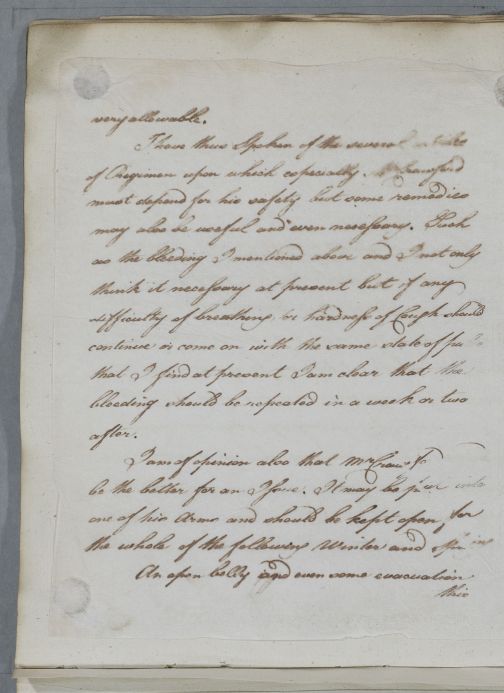 very allowable.
I have thus Spoken of the several
of Regimen upon which especially Mr Crawford
must depend for his safety but some remedies
may also be useful and even necessary. Such
as the bleeding I mentioned above and I not only
think it necessary at present but if any
difficulty of breathing or hardness of Cough should
continue or come on with the same state of
that I find at present I am clear that the
bleeding should be repeated in a week or two
after.
I am of opinion also that Mr
be the better for an Issue. It may be put into
one of his Arms and should be kept open, for
the whole of the following Winter and
An open belly and even some evacuation
this